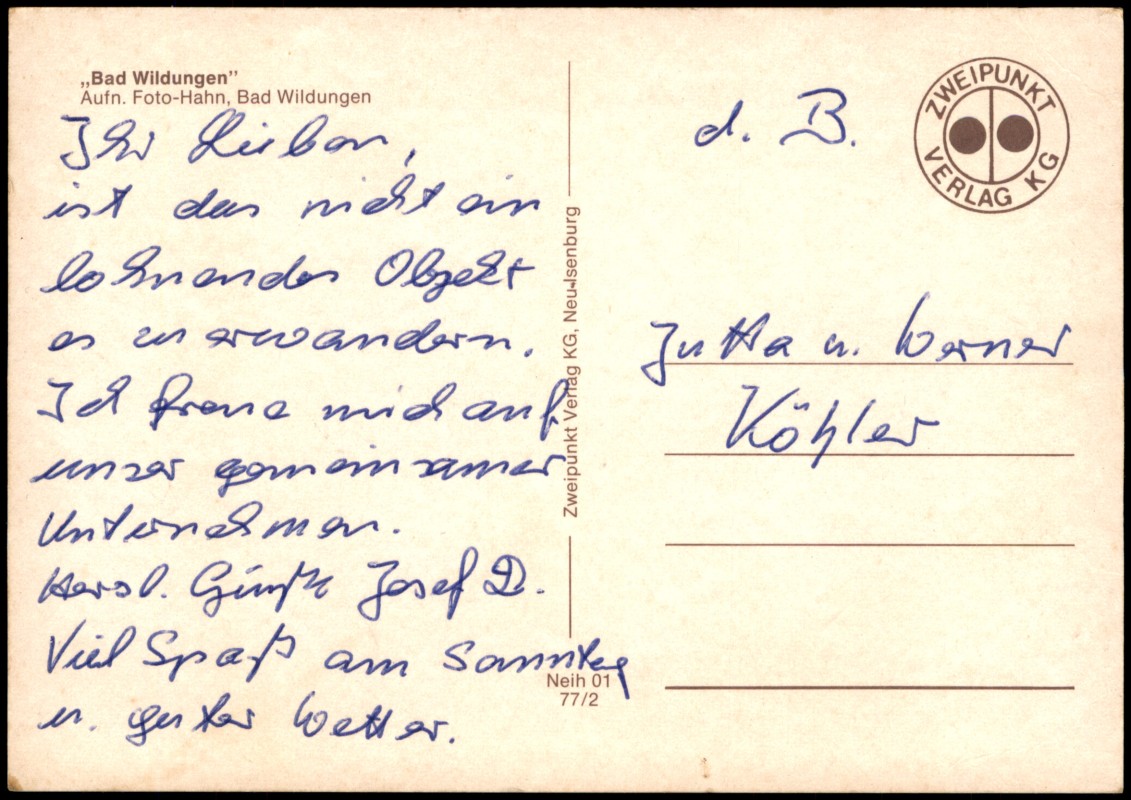 „Bad Wildungen”
Aufn. Foto-Hahn, Bad Wildungen
Ihr Lieben,
ist das nicht ein
lohnendes Objekt
es zu erwandern.
Ich freue mich auf
unser gemeinsamer
Unternehmen.
Herzl. Grüße Josef D.
Viel Spaß am Sonntag
u. guter Wetter.
Zweipunkt Verlag KG, Neu-Isenburg
Neih 01
77/2
d. B.
ZWEIPUNKT
VERLAG KG
Jutta u. Werner
Köhler